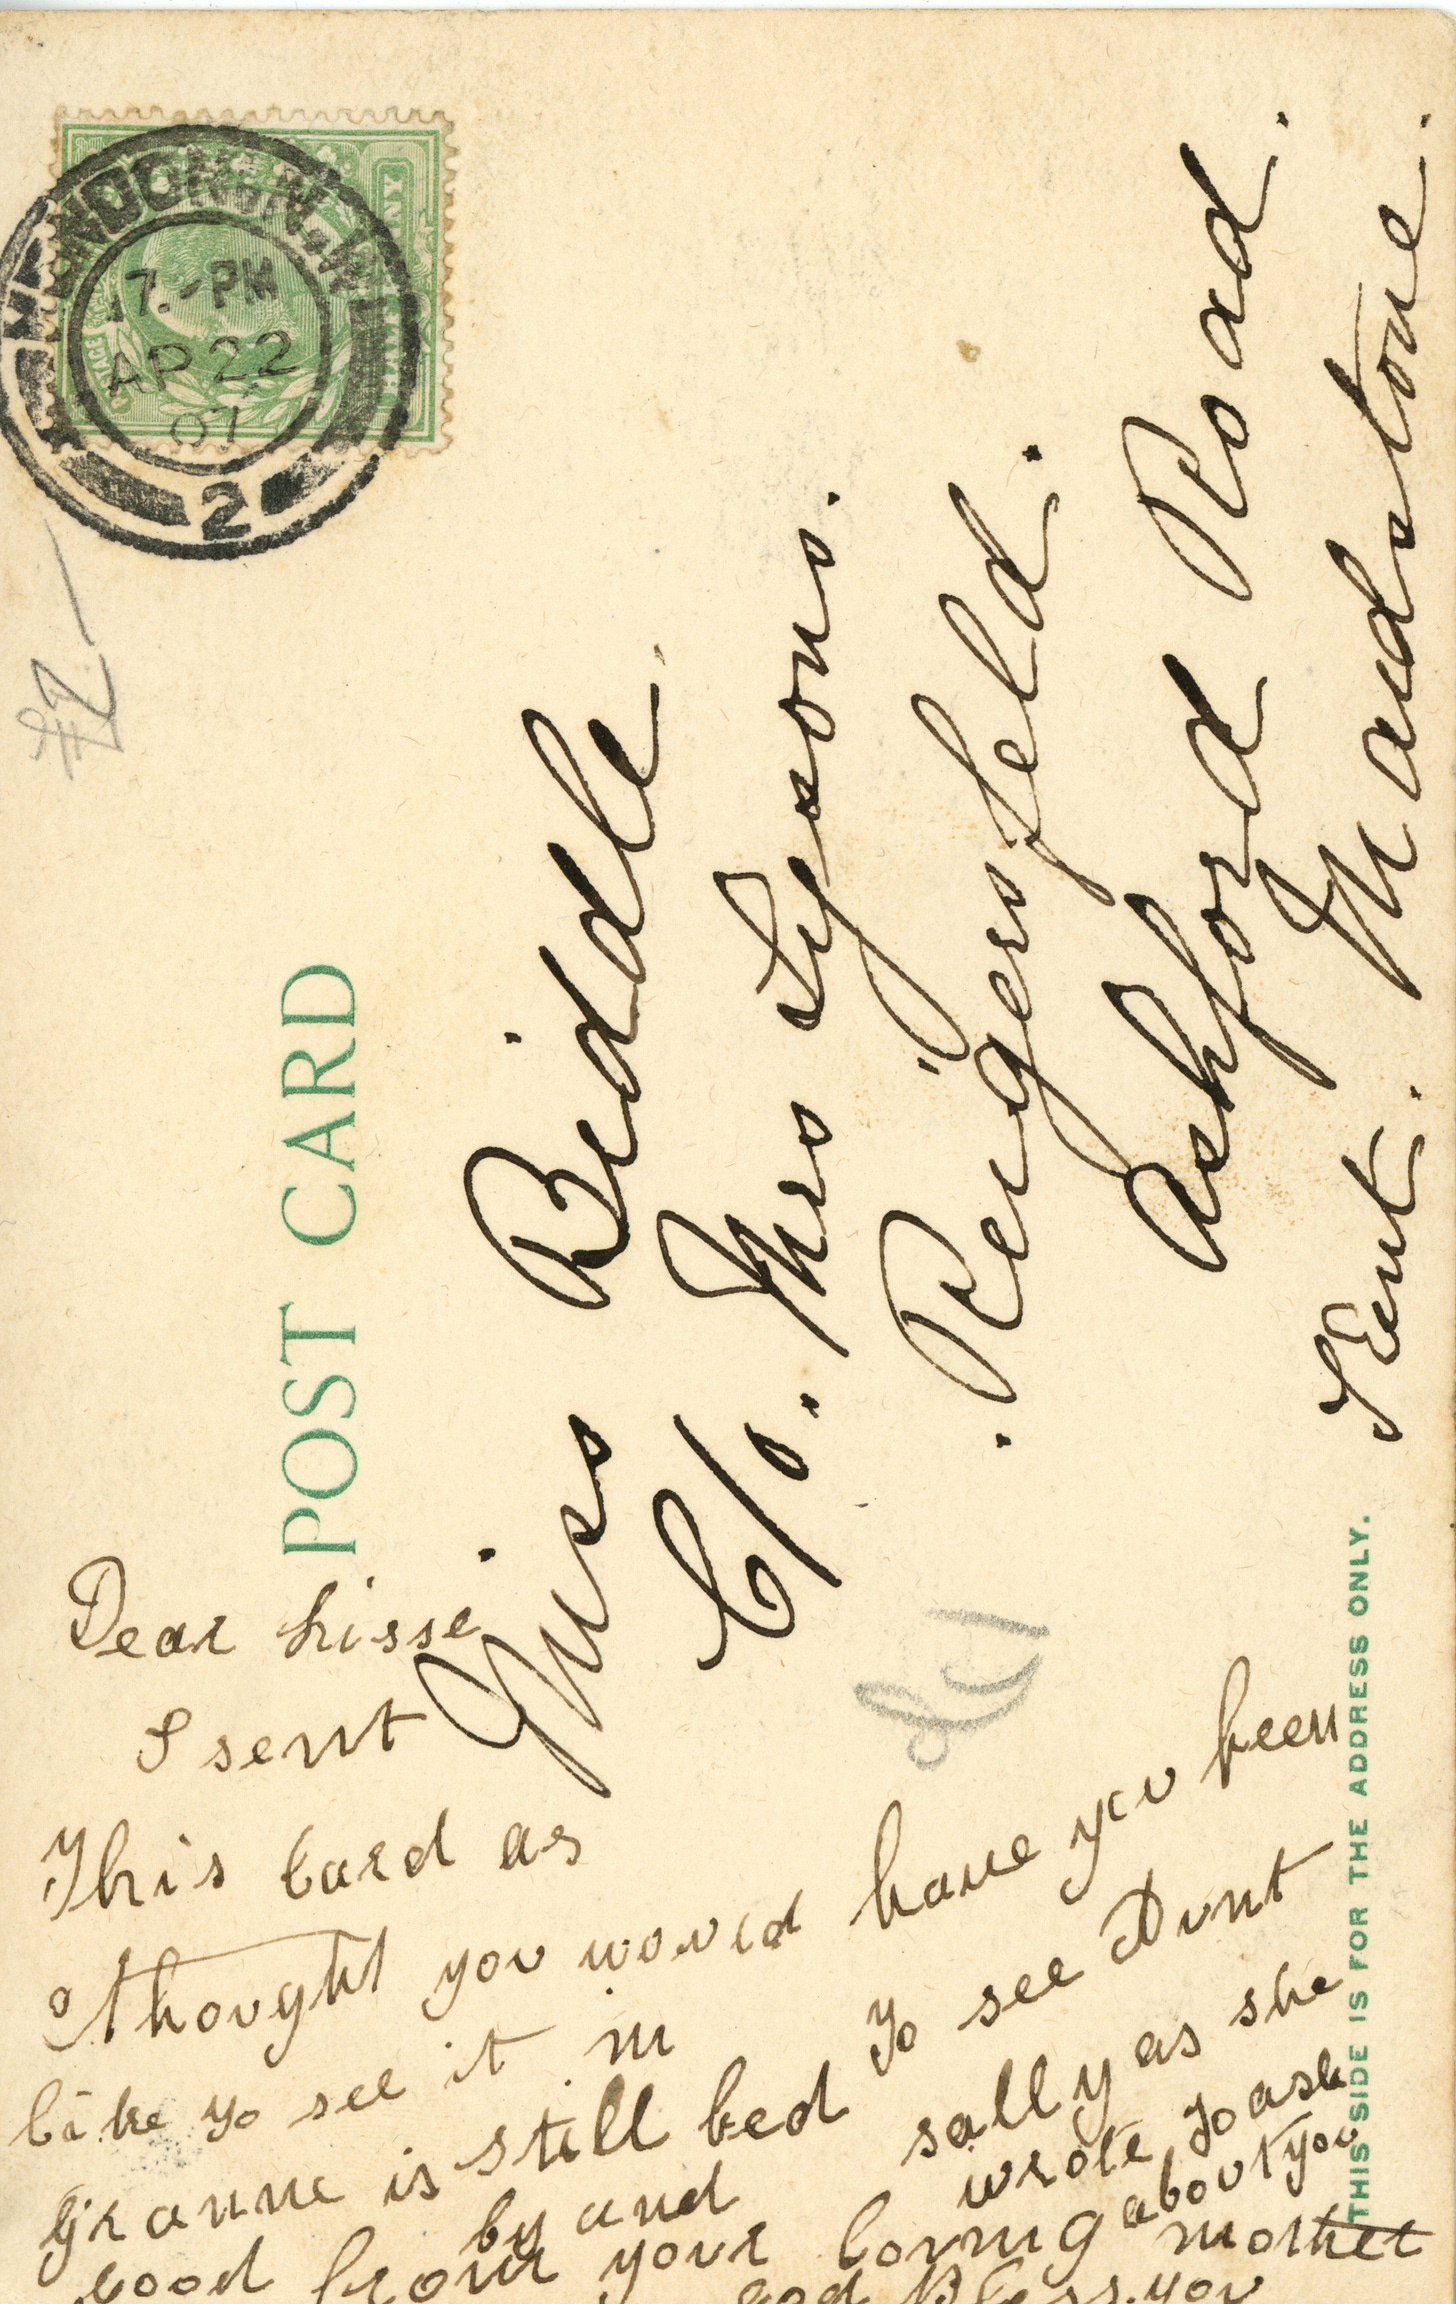 HENDON. N.W.
7.-PM
AP 22
07
2
POST CARD
Miss Biddle.
C/o. Mrs Lyons.
"Reigersfeld.
Ashford Road.
Maidstone.
Kent.
THIS SIDE IS FOR THE ADDRESS ONLY.
Dear Lisse
I sent
This Card as
I thought you would
like to see it
granne is still in bed
have you been
to see Aunt
sally as she
wrote to ask
about you
good by and
from your loving mother
god Bless you